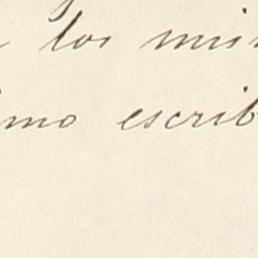 los mis
imo escrib